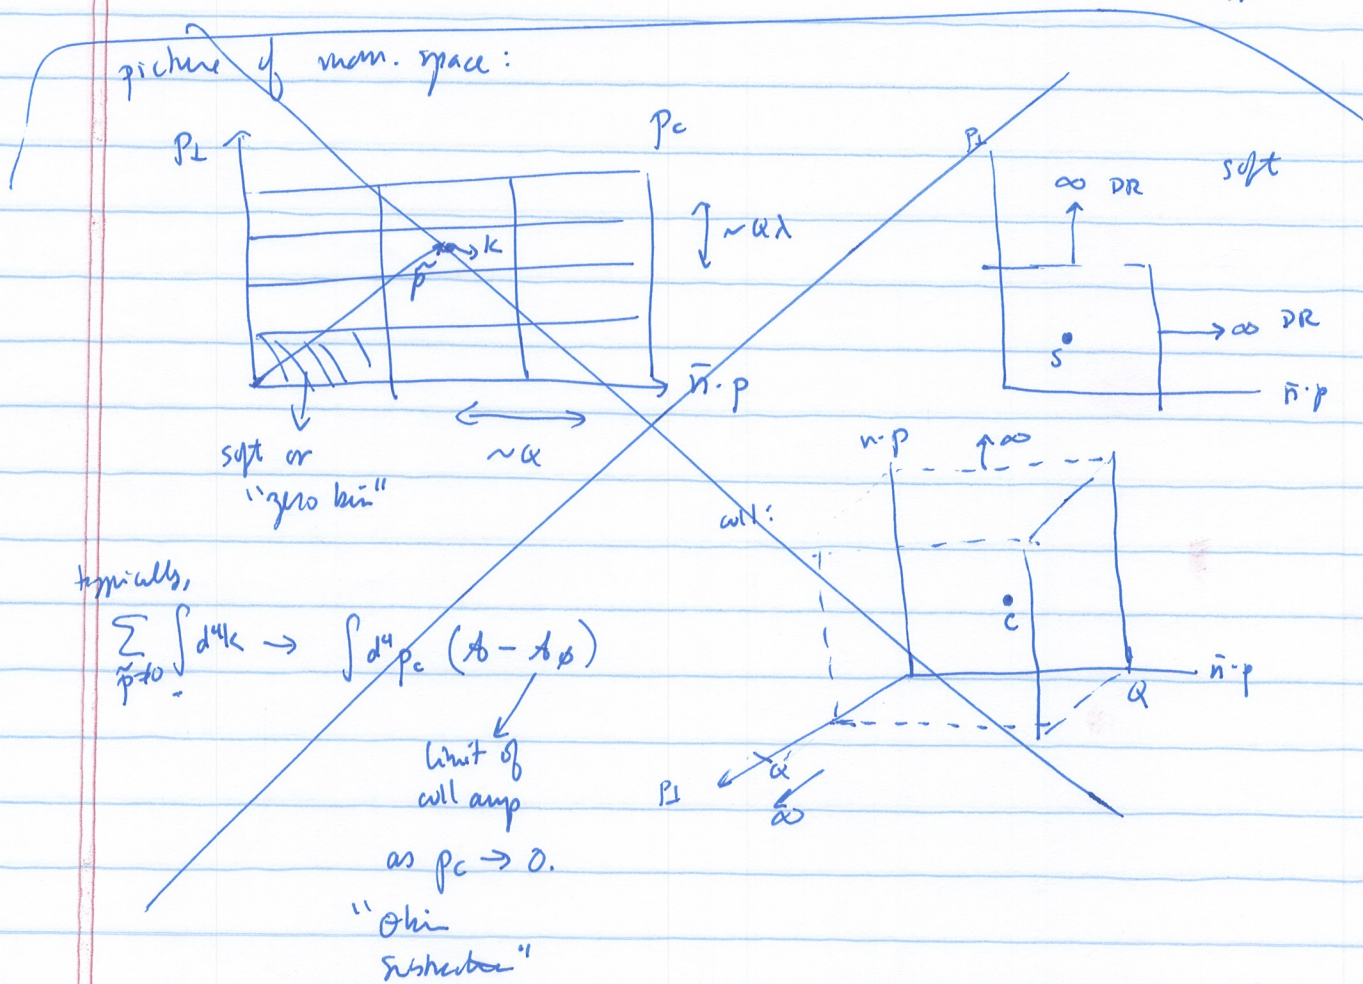 picture of mom. space:
p⊥
p_c
~Qλ
k
p̃
n̄·p
soft or
"zero bin"
~Q
p⊥
soft
∞ DR
∞ DR
s
n̄·p
coll:
n·p
∞
c
n̄·p
Q
p⊥
Q
∞
typically,
∑_{p̃≠0} ∫ d⁴k → ∫ d⁴p_c (A - A_∅)
limit of
coll amp
as p_c → 0.
"0bin
subtraction"